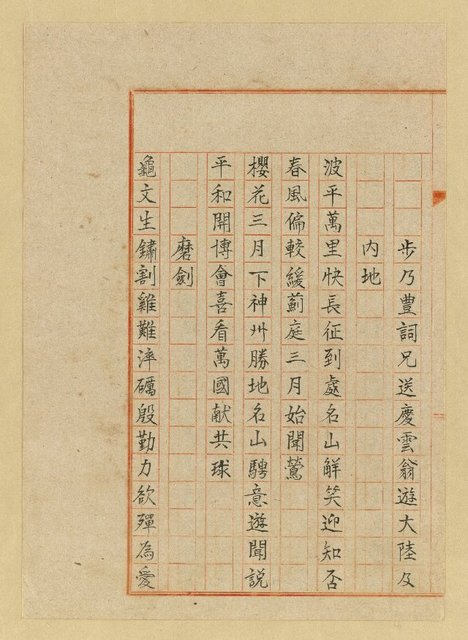 步乃豊詞兄送慶雲翁遊大陸及
內地
波平萬里快長征到處名山觧笑迎知否
春風偏較緩薊庭三月始聞鶯
櫻花三月下神州勝地名山騁意遊聞說
平和開博會喜看萬國献共球
磨劍
龜文生鏽割雞難淬礪殷勤力欲殫為愛